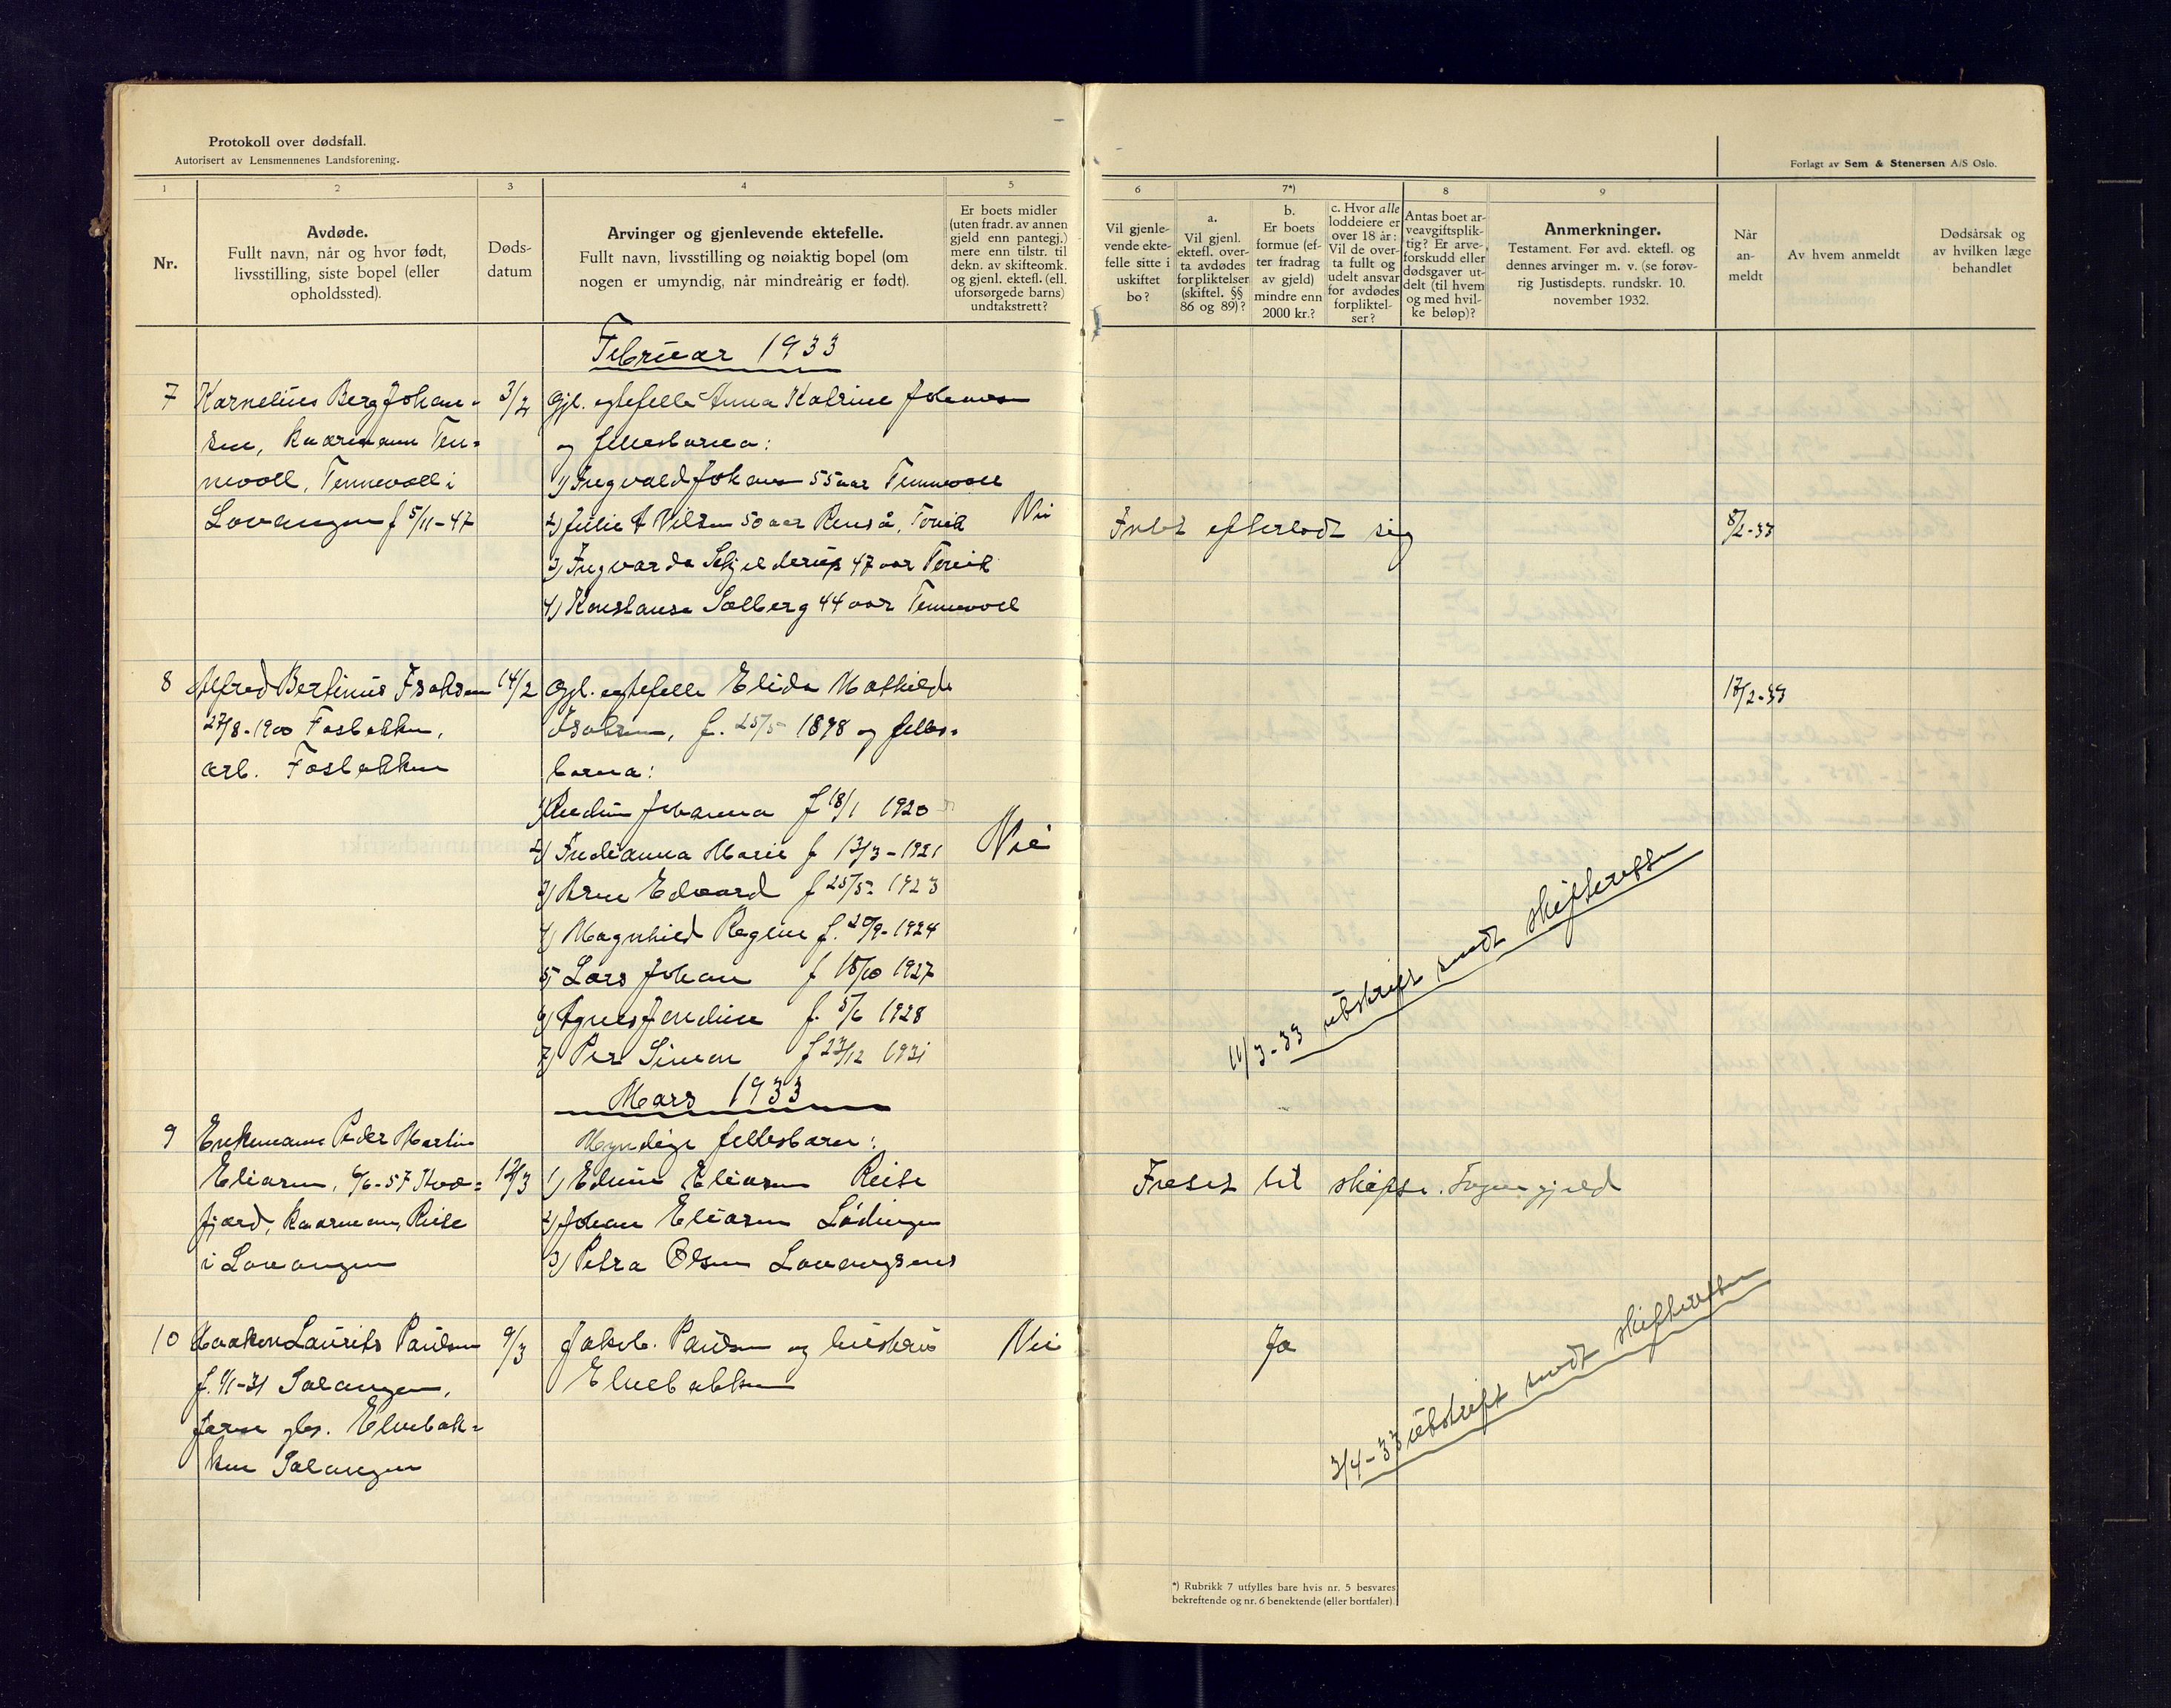 Protokoll over dødsfall.
Autorisert av Lensmennenes Landsforening.
Forlagt av Sem & Stenersen A/S Oslo.
1
2
3
4
5
6
7*)
8
9
Nr.
Avdøde.
Fullt navn, når og hvor født,
livsstilling, siste bopel (eller
opholdssted).
Døds-
datum
Arvinger og gjenlevende ektefelle.
Fullt navn, livsstilling og nøiaktig bopel (om
nogen er umyndig, når mindreårig er født).
Er boets midler
(uten fradr. av annen
gjeld enn pantegj.)
mere enn tilstr. til
dekn. av skifteomk.
og gjenl. ektefl. (ell.
uforsørgede barns)
undtakstrett?
Vil gjenle-
vende ekte-
felle sitte i
uskiftet
bo?
a.
Vil gjenl.
ektefl. over-
ta avdødes
forpliktelser
(skiftel. §§
86 og 89)?
b.
Er boets
formue (ef-
ter fradrag
av gjeld)
mindre enn
2000 kr.?
c. Hvor alle
loddeiere er
over 18 år:
Vil de over-
ta fullt og
udelt ansvar
for avdødes
forpliktel-
ser?
Antas boet ar-
veavgiftsplik-
tig? Er arve-
forskudd eller
dødsgaver ut-
delt (til hvem
og med hvil-
ke beløp)?
Anmerkninger.
Testament. Før avd. ektefl. og
dennes arvinger m. v. (se forøv-
rig Justisdepts. rundskr. 10.
november 1932.
Når
an-
meldt
Av hvem anmeldt
Dødsårsak og
av hvilken læge
behandlet
Februar 1933
7 Karnelius Berg Johan- 3/2 Gjl. egtefelle Anna Katrine Johansen
sen, kaarmann Ten- og fellesbarna:
nevoll, Tennevoll i 1) Ingvald Johansen 55 aar Tennevoll
Lavangen f 5/11-47 2) Julie A Nilsen 50 aar Renså, Nei Intet efterlodt sig 8/2-33
3) Ingvarda Schjelderup 47 aar
4) Konstanse Solberg 44 aar Tennevoll
8 Alfred Bertinus Isaksen 14/2 Gjl. egtefelle Elida Mathilde 17/2-33
27/8-1900 Fosbakken, Isaksen, f. 25/5 1898 og felles-
arb. Fosbakken barna:
1) Johanna f 18/1 1920
2) Marie f 13/3-1921 Nei
3) Arne Edvard f 25/5- 1923
4) Magnhild Regine f. 20/9-1924
5) Lars Johan f 18/10 1927
6) Agnes Jendine f. 5/6 1928
7) Per Simon f 23/12 1931
11/3-33 utskrift sendt skifteretten
Mars 1933
9 Enkemann Peder Martin Myndige fellesbarn:
Eliasen, 6/6-57 Kvæ- 12/3 1) Edvin Eliasen Reite til skifte. Ingen gjeld
fjord, kaarmann, Reite 2) Johan Eliasen Lødingen
i Lavangen 3) Petra Olsen Lavangsnes
10 Haakon Laurits Paulsen 9/3 Jakob Paulsen og hustru Nei Ja
f. 9/1-31 Salangen, Elvebakken
Elvebak-
ken Salangen
3/4-33 utskrift sendt skifteretten
*) Rubrikk 7 utfylles bare hvis nr. 5 besvares
bekreftende og nr. 6 benektende (eller bortfaler).